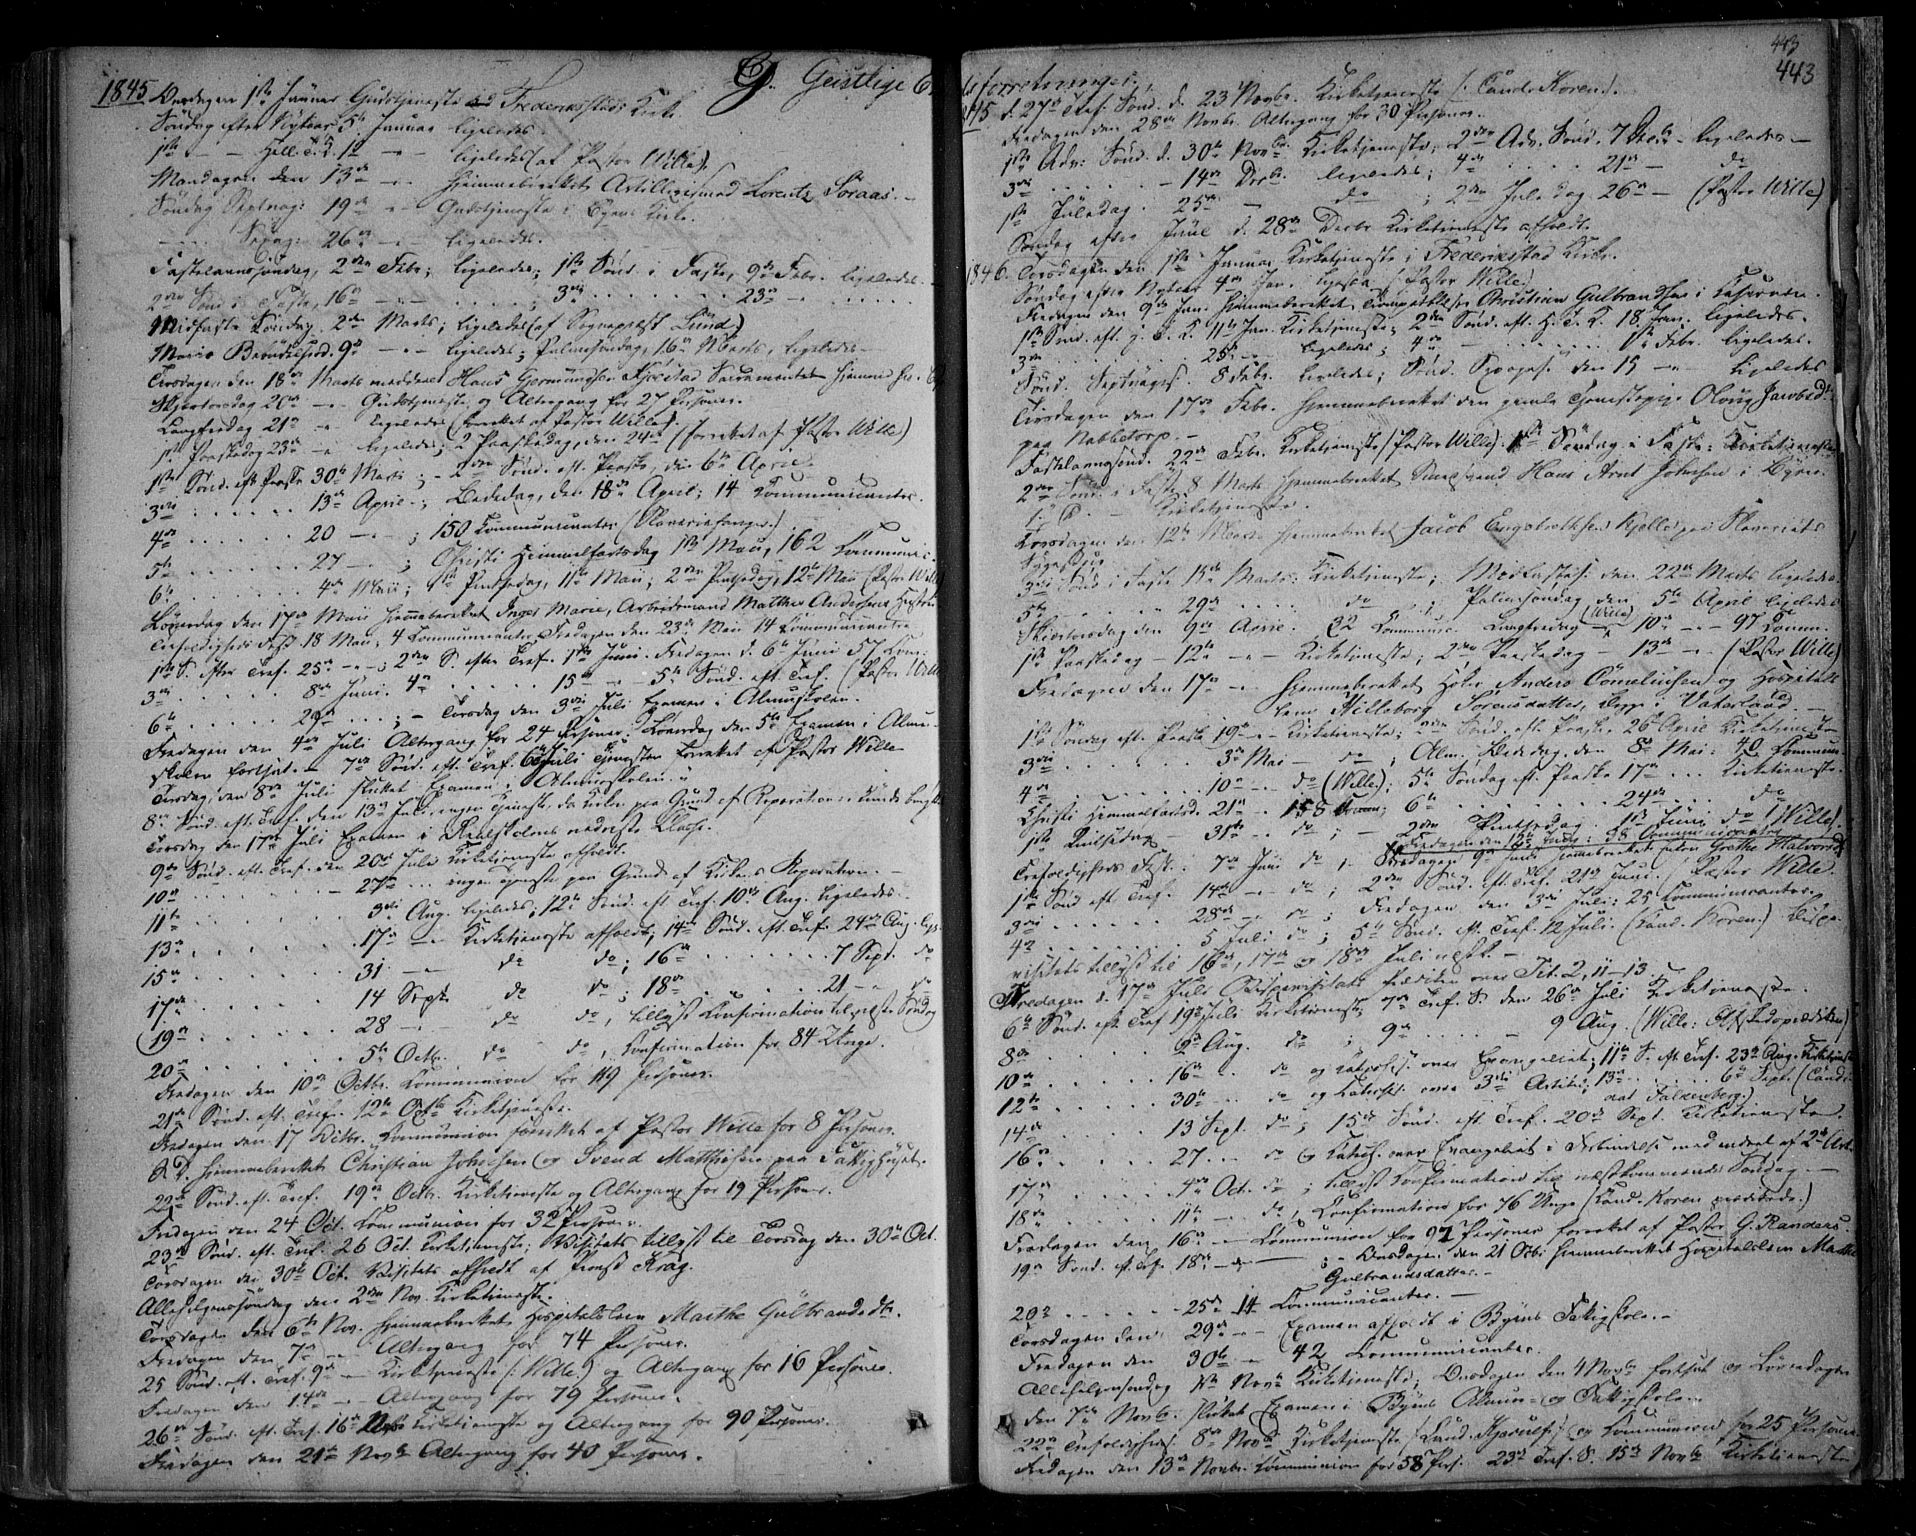 G. Geistlige Em
1845 Onsdagen 1ste Januar Gudstjeneste ved Frederiksstads Kirke.
Søndag efter Nytaar 5te Januar ligeledes.
1ste — — Hell. 3 K. 12 — ligeledes (af Pastor Wille).
Mandagen den 13de — Hjemmeberettet Artillerimand Lorentz Soraas.
Søndag Septuag: 19de — Gudstjeneste i Byens Kirke.
— Sexag: 26de — ligeledes.
Fastelavnssøndag, 2den Febr; ligeledes; 1ste Sønd. i Faste, 9de Febr. ligeledes
2den Sønd. i Faste, 16de — ; 3die 23de —
Midfaste Søndag, 2den Marts; ligeledes (af Sognepræst Lund)
Mariæ Bebudelsesd. 9de — ligeledes; Palmesøndag, 16de Marts, ligeledes —
Tirsdagen den 18de Marts meddeelt Hans Germundsen Sacramentet hjemme
Skjertorsdag 20de — Gudstjeneste og Altergang for 27 Personer.
Langfredag 21de — ligeledes (forrettet af Pastor Wille).
1ste Paaskedag 23de — ligeledes; 2 Paaskedag, den 24de (forrettet af Pastor Wille)
1ste Sønd. eft. Paaske 30te Marts; — 2den Sønd. eft. Paaske, den 6te April
3die 13de April —; Bededag, den 18de April; 14 Communicanter.
4de 20 — ; 150 Communicanter (Slaveriefanger.)
5te 27 — ; Christi Himmelfartsdag 1ste Maii, 162 Communic.
6te 4de Maii; 1ste Pintsedag, 11te Maii; 2den Pintsedag, 12te Maii (Pastor Wille)
Løverdag den 17de Maii hjemmeberettet Inger Marie, Arbeidsmand Matthis Andersens Hustru
Trefoldigheds Fest 18 Maii, 4 Communicanter, Fredagen den 23de Maii 14 Communicanter
1ste S. efter Tref. 25de — ; 2den S. efter Tref. 1ste Junii. Fredagen d. 6te Junii 57 Com:
3die 8de Juni. 4de 15de — 5te Sønd. eft. Tref. (Pastor Wille
6te 29de ; — Torsdag den 3die Juli Examen i Almueskolen.
Fredagen den 4de Juli Altergang for 24 Personer. Løverdag den 5te Examen i Almue-
skolen fortsat. — 7de Sønd. eft. Tref. 6te Juli Tjenesten forrettet af Pastor Wille
Tirsdag, den 8de Juli sluttet Examen i Almueskolen.
8de Sønd. eft. Tref. den 13de Juli, ingen Tjeneste, da Kirken paa Grund af Reparation ei kunde benyttes
Torsdag den 17de Juli Examen i Realskolens nederste Classe.
9de Sønd. eft. Tref. den 20de Juli Kirketjeneste afholdt.
10de — 27de ... ingen Tjeneste paa Grund af Kirkens Reparation. —
11te 3die Aug. ligeledes; 12te Sønd. eft. Tref. 10de Aug. ligeledes.
13de 17de — Kirketjeneste afholdt; 14de Sønd. eft. Tref. 24de Aug. lige
15de 31 — do do; 16de 7 Sept. do
17de 14 Sept. do do; 18de 21 — do
19de 28 — do do, tillyst Konfirmation til næste Søndag
20de 5te Octbr. do do, Konfirmation for 84 Unge.
Fredagen den 10de Octbr. Communion for 119 Personer.
21de Sønd. eft. Tref. 12te Octb. Kirketjeneste.
Fredagen den 17 Octbr. Communion forrettet af Pastor Wille for 8 Personer.
S. D. Hjemmeberettet Christian Johnsen og Svend Matthisen paa Fattighuset.
22de Sønd. eft. Tref. 19de Octbr. Kirketjeneste og Altergang for 19 Personer.
Fredagen den 24 Oct. Communion for 32 Personer.
23de Sønd. eft. Tref. 26 Oct. Kirketjeneste; Visitats tillyst til Torsdag den 30te Oct.
Torsdagen den 30te Oct. Visitats afholdt af Provst Krag.
Allehelgenssøndag den 2den Nov. Kirketjeneste.
Torsdagen den 6te Nov. hjemmeberettet Hospitalslem Marthe Gulbrandsdtr.
Fredagen den 7de — Altergang for 74 Personer.
25 Sønd. eft. Tref. 9de — Kirketjeneste (: Wille.) og Altergang for 16 Personer.
Fredagen den 14de — Altergang for 79 Personer.
26de Sønd. eft. Tref. 16de Nov. Kirketjeneste og Altergang for 90 Personer.
Fredagen den 21de Novbr Altergang for 40 Personer.
443
443
bedsforretninger.
1845. d. 27de Tref. Sønd. d. 23 Novbr. Kirketjeneste (: Cand. Koren).
Fredagen den 28de Novbr. Altergang for 30 Personer.
1ste Adv: Sønd. d. 30te Novbr. Kirketjeneste; 2den Adv. Sønd. 7 Decbr. ligeledes —
3die — 14de Decbr. ligeledes; 4de 21de — do
1ste Juledag. 25de — do ; 2den Juledag 26de — (Pastor Wille)
Søndag efter Juul d. 28de Decbr Kirketjeneste afholdt.
1846. Torsdagen den 1ste Januar Kirketjeneste i Frederikstad Kirke.
Søndag efter Nytaar 4de Jan. ligesaa (Pastor Wille)
Fredagen den 9de Jan. hjemmeberettet Christian Gulbrandsen i
1ste Sønd. eft. H. 3 K. 11te Jan. Kirketjeneste; 2den Sønd. eft. H. 3 K. 18 Jan. ligeledes.
3die 25de — ligeledes; 4de 1ste Febr. ligeledes.
Sønd. Septuages. 8 Febr. ligeledes; Sønd. Sexages. den 15 — ligeledes
Tirsdagen den 17de Febr. hjemmeberettet den gamle Tjenestepige Oloug Jacobsd.
paa Nabbetorp. —
Fastelavnssønd. 22de Febr. Kirketjeneste (Pastor Wille). 1ste Søndag i Faste: Kirketjeneste
2den Sønd. i Faste 8 Marts hjemmeberettet Hans Arnt Johnsen i Byen.
S. D. — Kirketjeneste.
Torsdagen den 12te Marts hjemmeberettet Jacob Engebrethsen Kjelle paa Slaveriets
Sygehuus.
3die Sønd. i Faste 15de Marts. Kirketjeneste; Midfastes. den 22de Marts ligeledes.
5te 29de do ; Palmesøndag den 5te April ligeledes
Skjærtorsdag den 9de April. 32 Commun. Langfredag (Wille) 10de — 97 Comm.
1ste Paaskedag — 12te — Kirketjeneste; 2den Paaskedag — 13de — (Pastor Wille)
Fredagen den 17de — hjemmeberettet Anders Corneliusen og Hospitals
lem Hilleborg Torensdatter, begge i Vaterland. —
1ste Søndag eft. Paaske 19de — Kirketjeneste; 2den Sønd. eft. Paaske 26de April Kirketjeneste
3die 3die Mai — do; Alm. Bededag, den 8de Mai: 40 Commun.
4de 10de — do (Wille); 5te Søndag eft. Paaske 17de ... Kirketjeneste.
Christi Himmelfartsd. 21de — 158 Comm; 6te 24de do
1ste Pintsedag 31te — do ; — 2den Pintsedag. 1ste Juni do (Wille).
Fredagen den 12te Juni: 38 Communicanter
Trefoldigheds Fest. 7de Juni do; — 9de Juni hjemmeberettet Grethe Halvorsd
1ste Sønd. eft. Tref. 14de — do ; 2den Sønd. eft. Tref. 21de Juni (Pastor Wille.
3die 28de — do ; Fredagen den 3die Juli: 25 Communicanter.
4de 5 Juli do ; 5te Sønd. eft. Tref. 12 Juli. (Cand. Koren.) Bispe-
visitats tillyst til 16de, 17de og 18de Juli næstk. —
Fredagen d. 17de Juli Bispevisitats prædiken over Tit. 2, 11–13.
6te Sønd. eft. Tref. 19de Juli Kirketjeneste; 7de Tref. S. den 26de Juli Kirketjeneste.
8de 2den Aug. do ; 9de 9 Aug. (Wille: Afskedsprædiken)
10de 16de — do og Katechis. over Evangeliet; 11te S. eft. Tref. 23de Aug. Kirketjeneste
12te 30te — do og Katechis. over 3die Artikel; 13de 6te Sept. (Candi
dat Falkenberg.)
14de 13 Sept. do; 15de Sønd. eft. Tref. 20de Sept. Kirketjeneste.
16de 27 ... do og Katech. over Evangeliet i Forbindelse med endeel af 2den Art.
17de 4de Oct. do ; tillyst Konfirmation til næstkommende Søndag. —
18de 11te — do, Konfirmation for 76 Unge (Cand. Koren prædikede.)
Fredagen den 16de — Communion for 92 Personer forrettet af Pastor G. Randers.
19de Sønd. eft. Tref. 18de — do — ; — Onsdagen den 21 Octbr. hjemmeberettet Hospitalslem Marthe
Gulbrandsdatter. —
20de 25de 14 Communicanter. —
Torsdagen den 29de — Examen afholdt i Byens Fattigskole. —
Fredagen den 30te — 42 Communicanter.
Allehelgensøndag 1ste Novbr. Kirketjeneste; Onsdagen den 4 Novbr. fortsat og Løverdagen
den 7de Novbr. sluttet Examen i Byens Almue- og Fattigskole.
22de Trefoldigheds. 8de Novbr Kirketjeneste (Cand. Kjerulf.) og Communion for 25 Personer
Fredagen den 13de Novbr. Communion for 58 Pers. 23de Tref. S. 15de Novbr Kirketjeneste